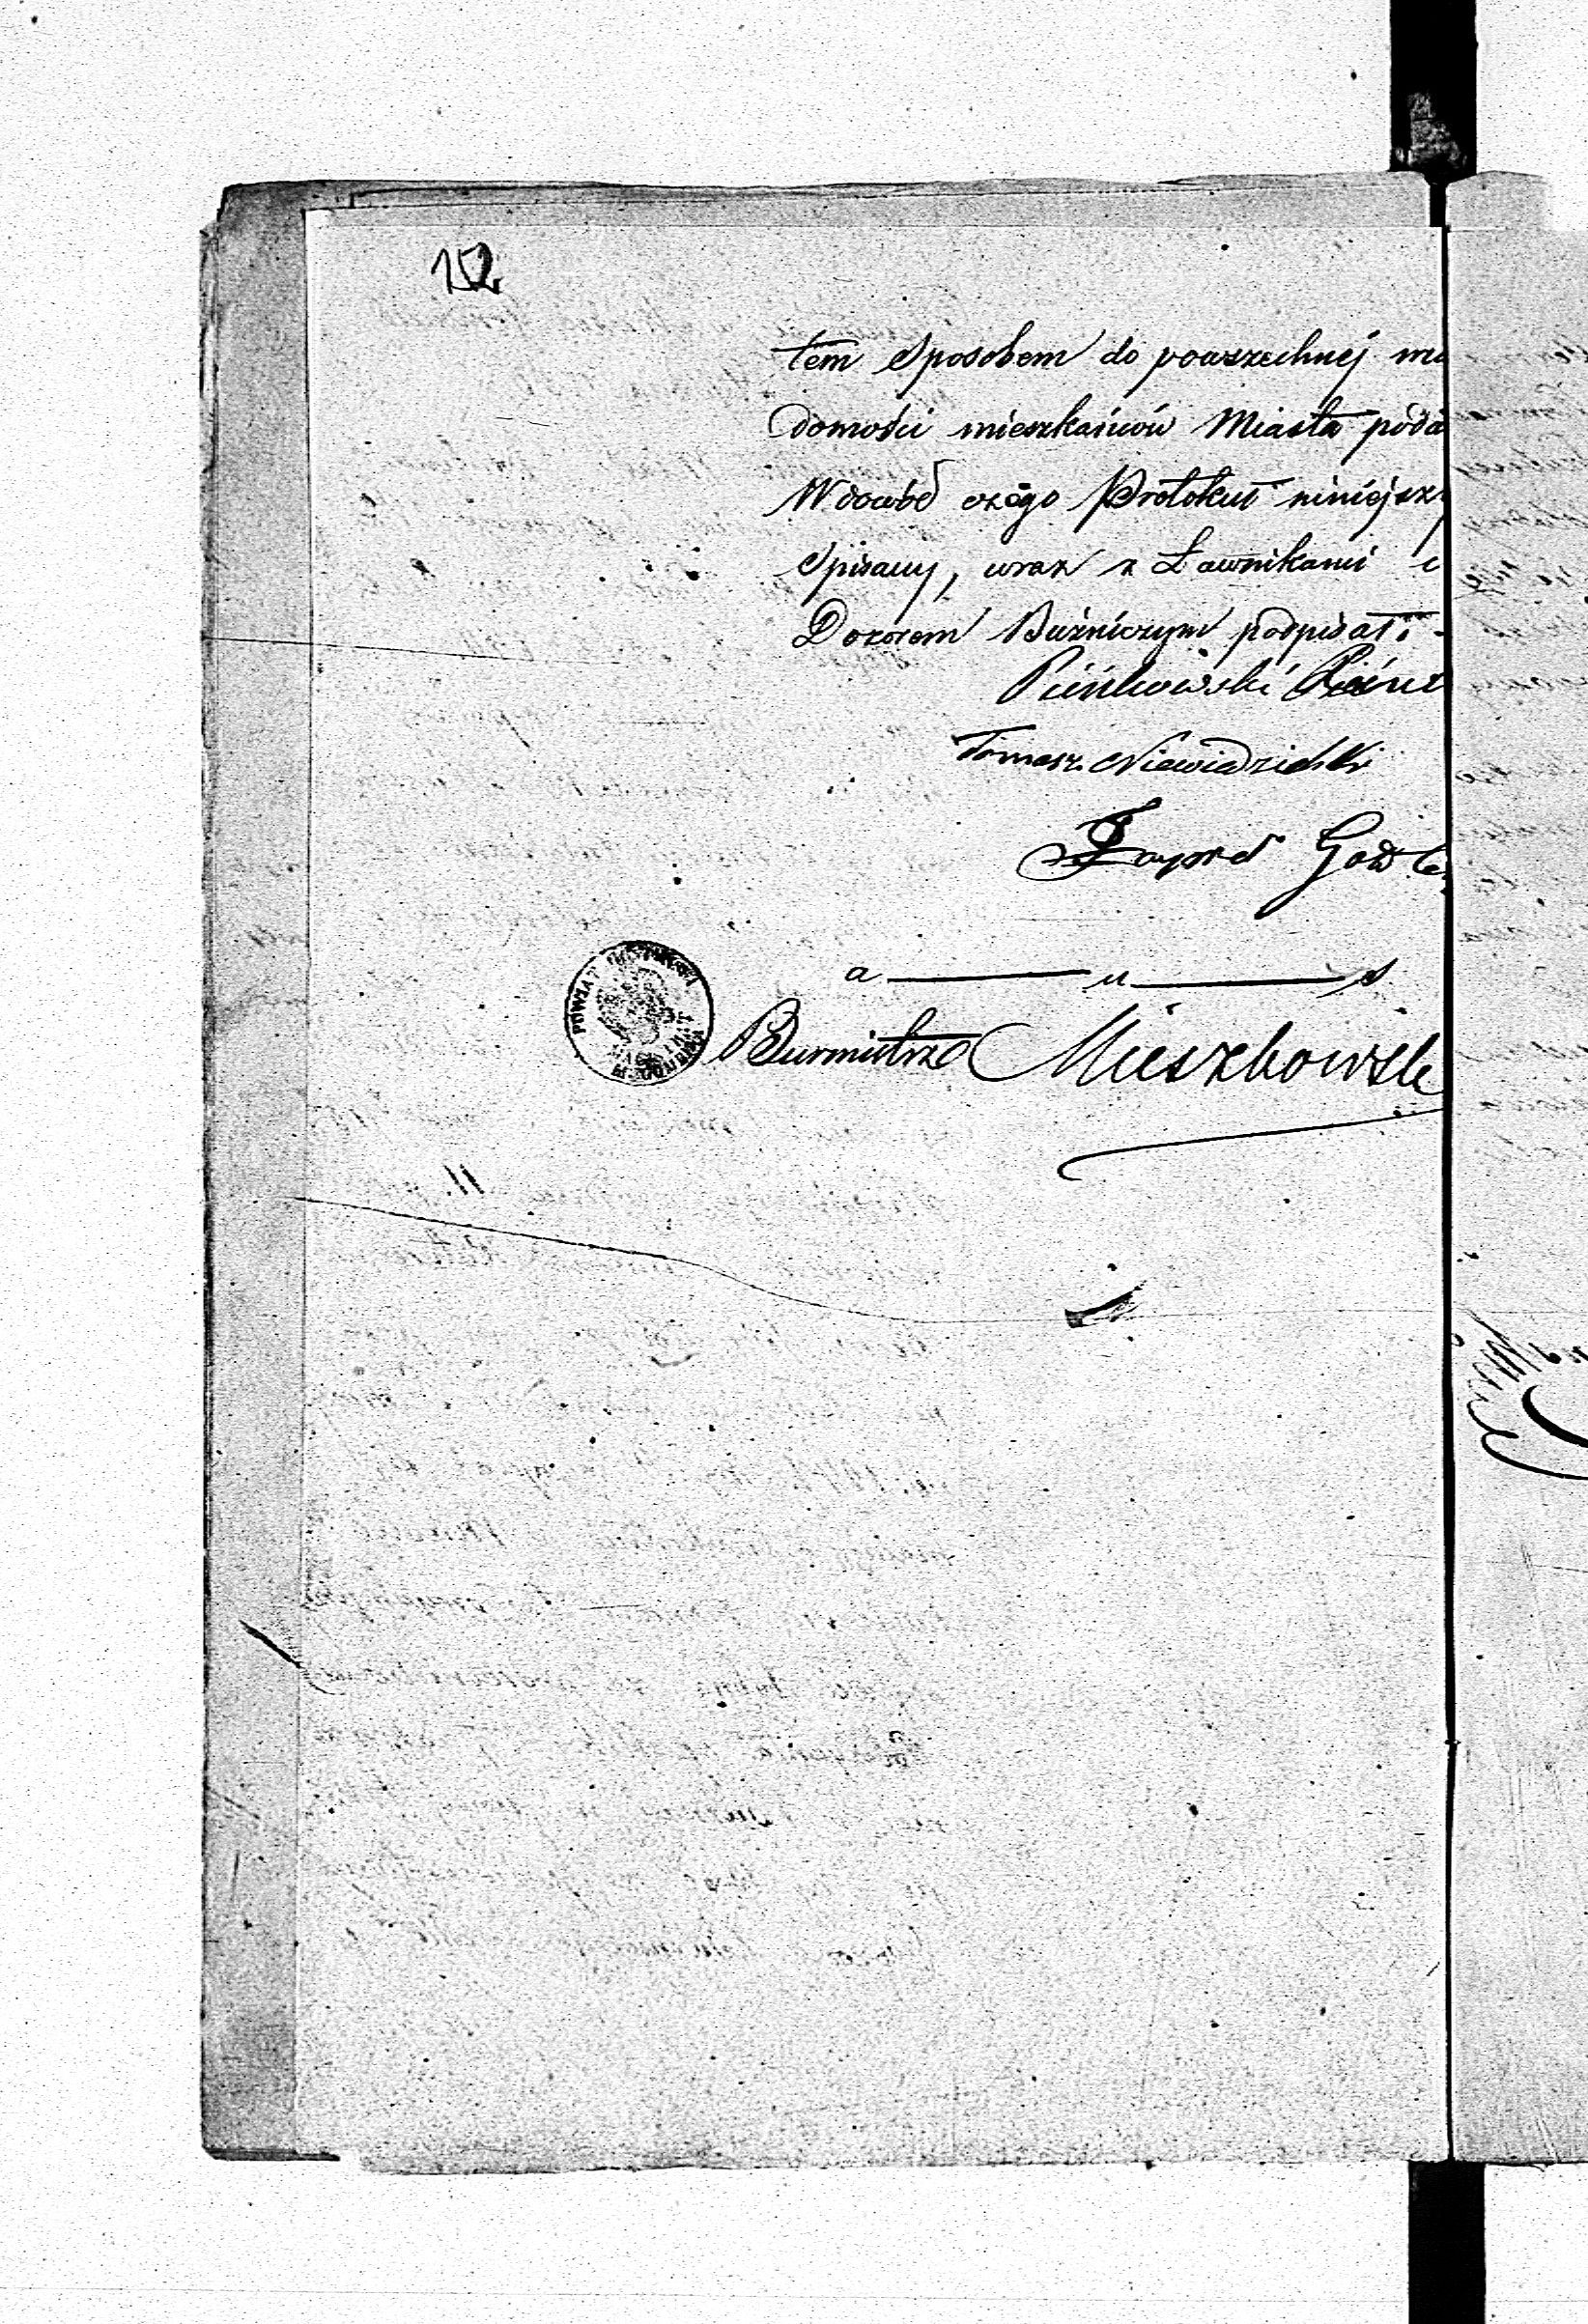 152
tem sposobem do powszechnej wia
domości mieszkańców Miasta poda
W dowód czego Protokuł niniejszy
spisany, wraz z Ławnikami i
Dozorem Bużniczym podpisał.
Pieńkowski
Tomasz Niewiadzielski
a u s
Burmistrz Mieszkowski
POWIAT
11.